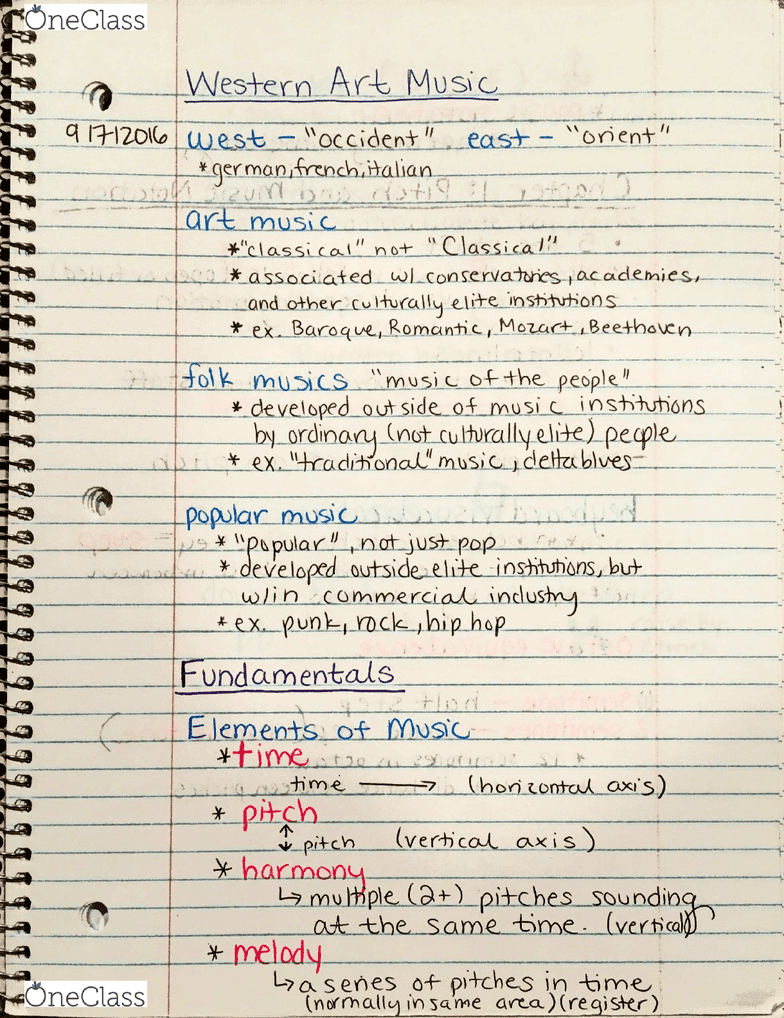 OneClass
Western Art Music
9/7/2016 west – "occident" east – "orient"
*german, french, italian
art music
*"classical" not "Classical"
* associated w/ conservatories, academies,
and other culturally elite institutions
* ex. Baroque, Romantic, Mozart, Beethoven
folk musics "music of the people"
* developed outside of music institutions
by ordinary (not culturally elite) people
* ex. "traditional" music, delta blues
popular music
* "popular", not just pop
* developed outside elite institutions, but
w/in commercial industry
* ex. punk, rock, hip hop
Fundamentals
Elements of Music
*time
time → (horizontal axis)
* pitch
↕ pitch (vertical axis)
* harmony
↳ multiple (2+) pitches sounding
at the same time. (vertical)
* melody
↳ a series of pitches in time
(normally in same area) (register)
OneClass